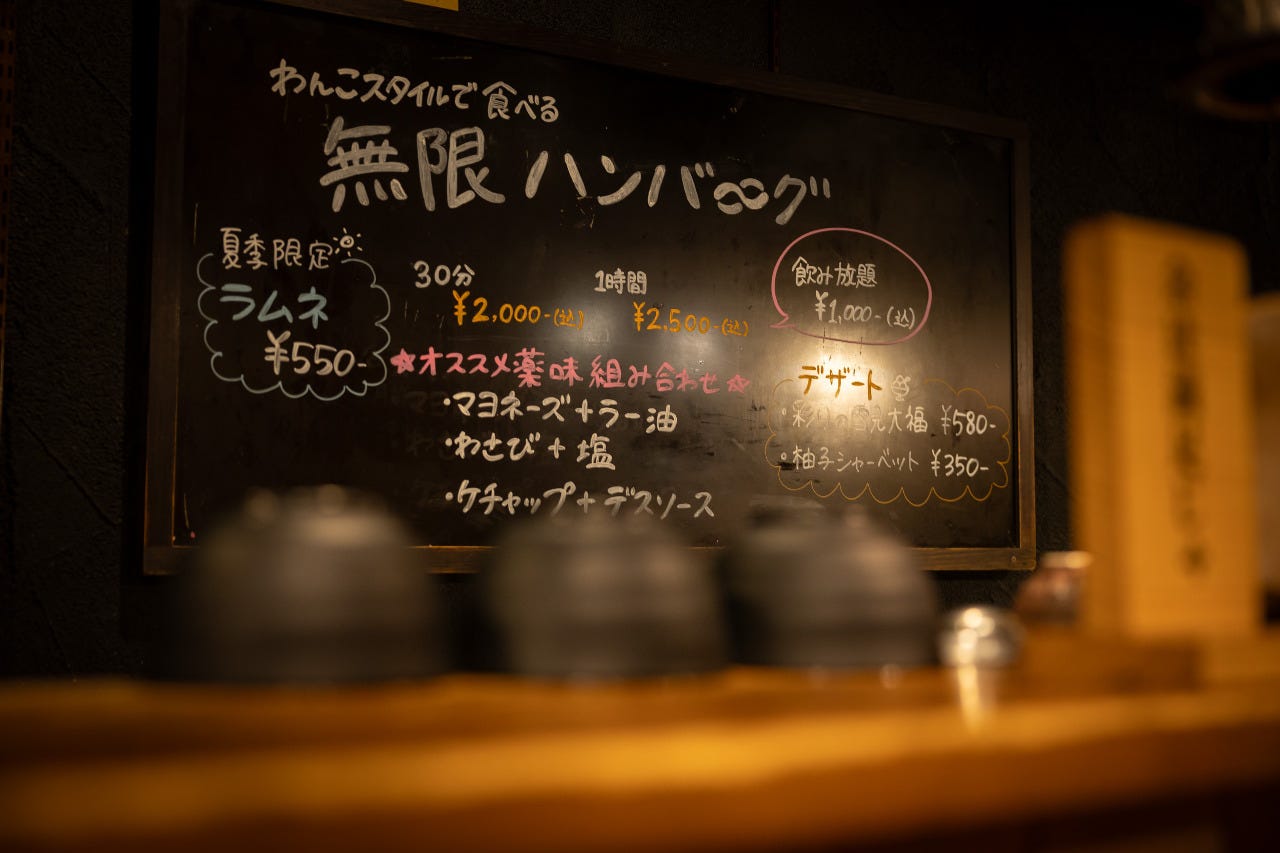 わんこスタイルで食べる
無限ハンバーグ
夏季限定
ラムネ
¥550-
30分
¥2,000-(込)
1時間
¥2,500-(込)
☆オススメ薬味組み合わせ☆
・マヨネーズ+ラー油
・わさび+塩
・ケチャップ+デスソース
飲み放題
¥1,000-(込)
デザート
・彩りの雪見大福 ¥580-
・柚子シャーベット ¥350-